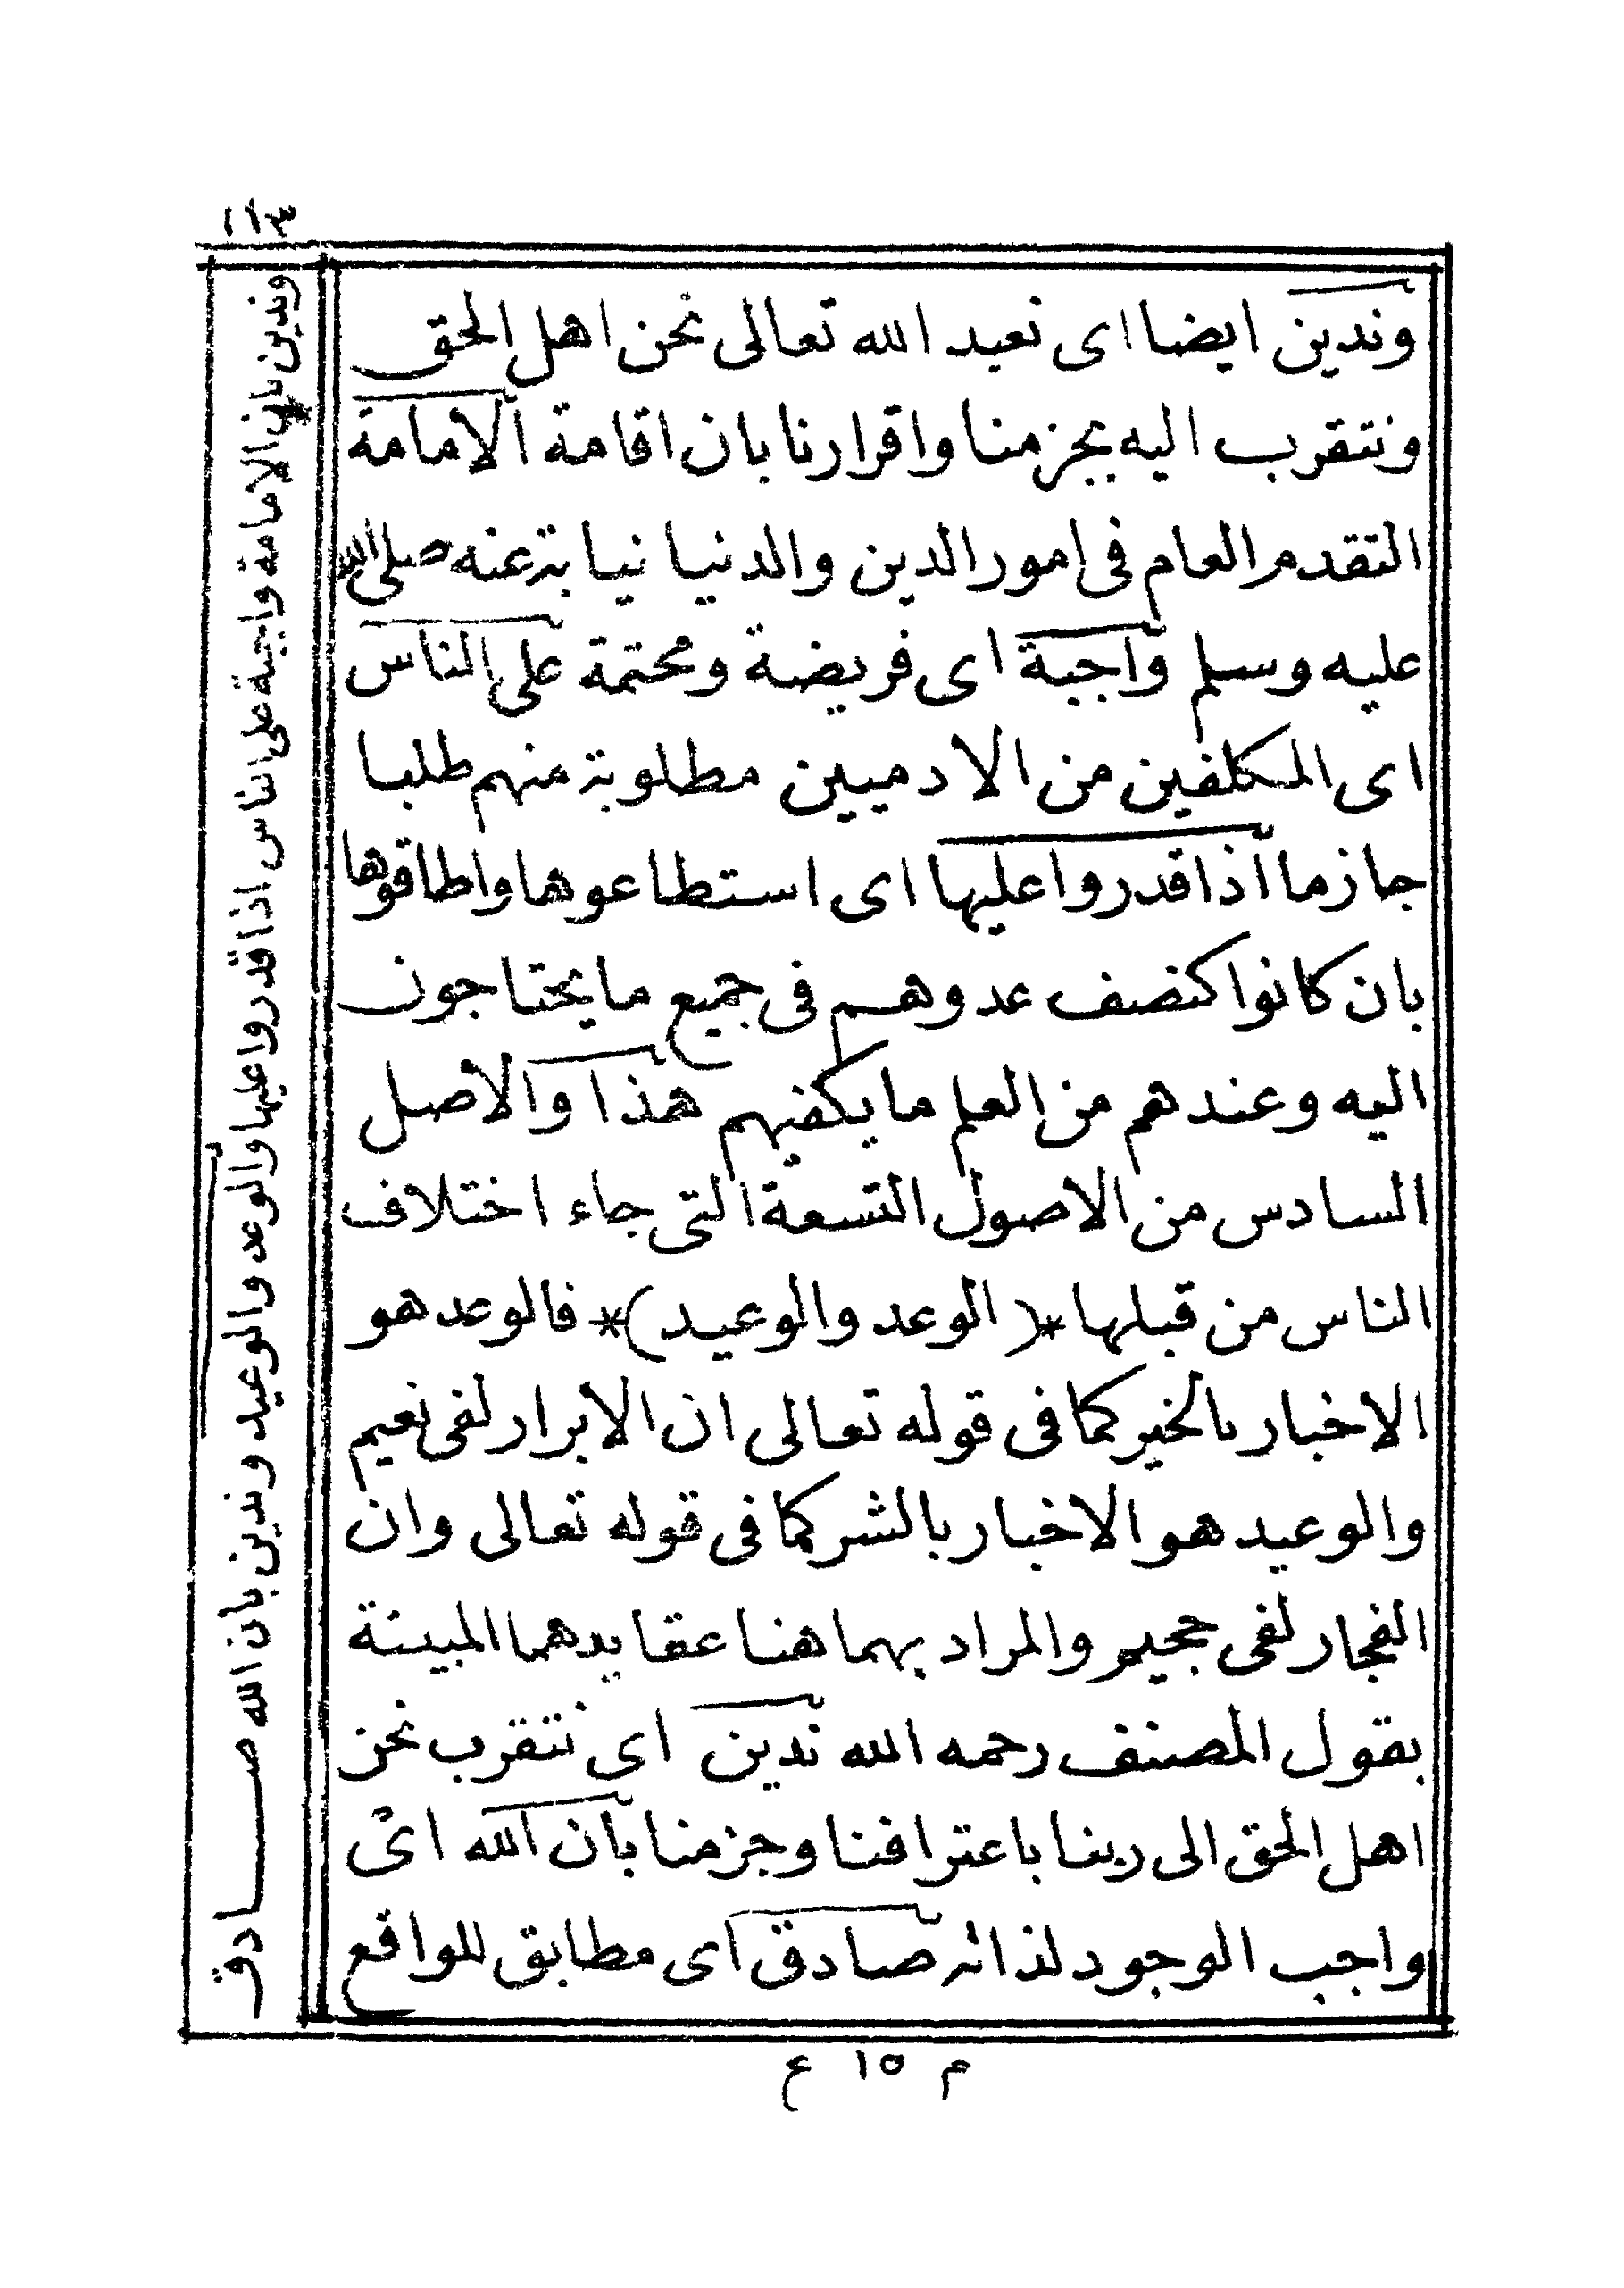 ١١٣
وندين ايضا اى نعبد الله تعالى نحن اهل الحق
ونتقرب اليه بجزمنا واقرارنا بان اقامة الامامة
التقدم العام فى امور الدين والدنيا نيابة عنه صلى الله
عليه وسلم واجبة اى فريضة ومحتمة على الناس
اى المكلفين من الادميين مطلوبة منهم طلبا
جازما اذا قدروا عليها اى استطاعوها واطاقوها
بان كانوا كنصف عدوهم فى جميع ما يحتاجون
اليه وعندهم من العلم ما يكفيهم هذا والاصل
السادس من الاصول التسعة التى جاء اختلاف
الناس من قبلها *(الوعد والوعيد)* فالوعد هو
الاخبار بالخير كما فى قوله تعالى ان الابرار لفى نعيم
والوعيد هو الاخبار بالشر كما فى قوله تعالى وان
الفجار لفى جحيم والمراد بهما هنا عقايدهما المبينة
بقول المصنف رحمه الله ندين اى نتقرب نحن
اهل الحق الى ربنا باعترافنا وجزمنا بان الله اى
واجب الوجود لذاته صادق اى مطابق للواقع
وندين بان الامامة واجبة على الناس اذا قدروا عليها والوعد والوعيد وندين بان الله صادق
م ١٥ ع